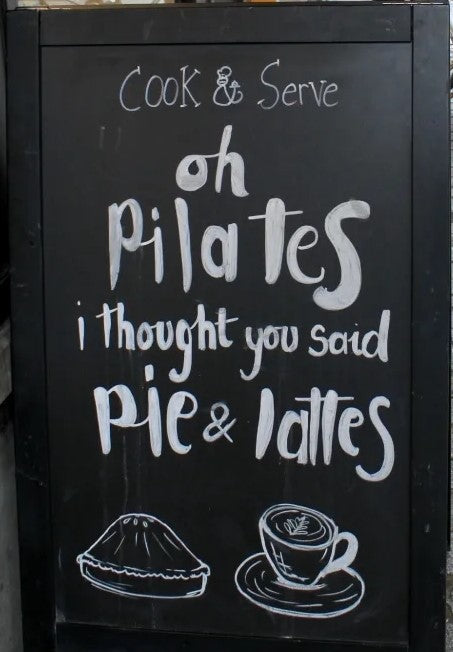 Cook & Serve
oh
Pilates
i thought you said
Pie & lattes